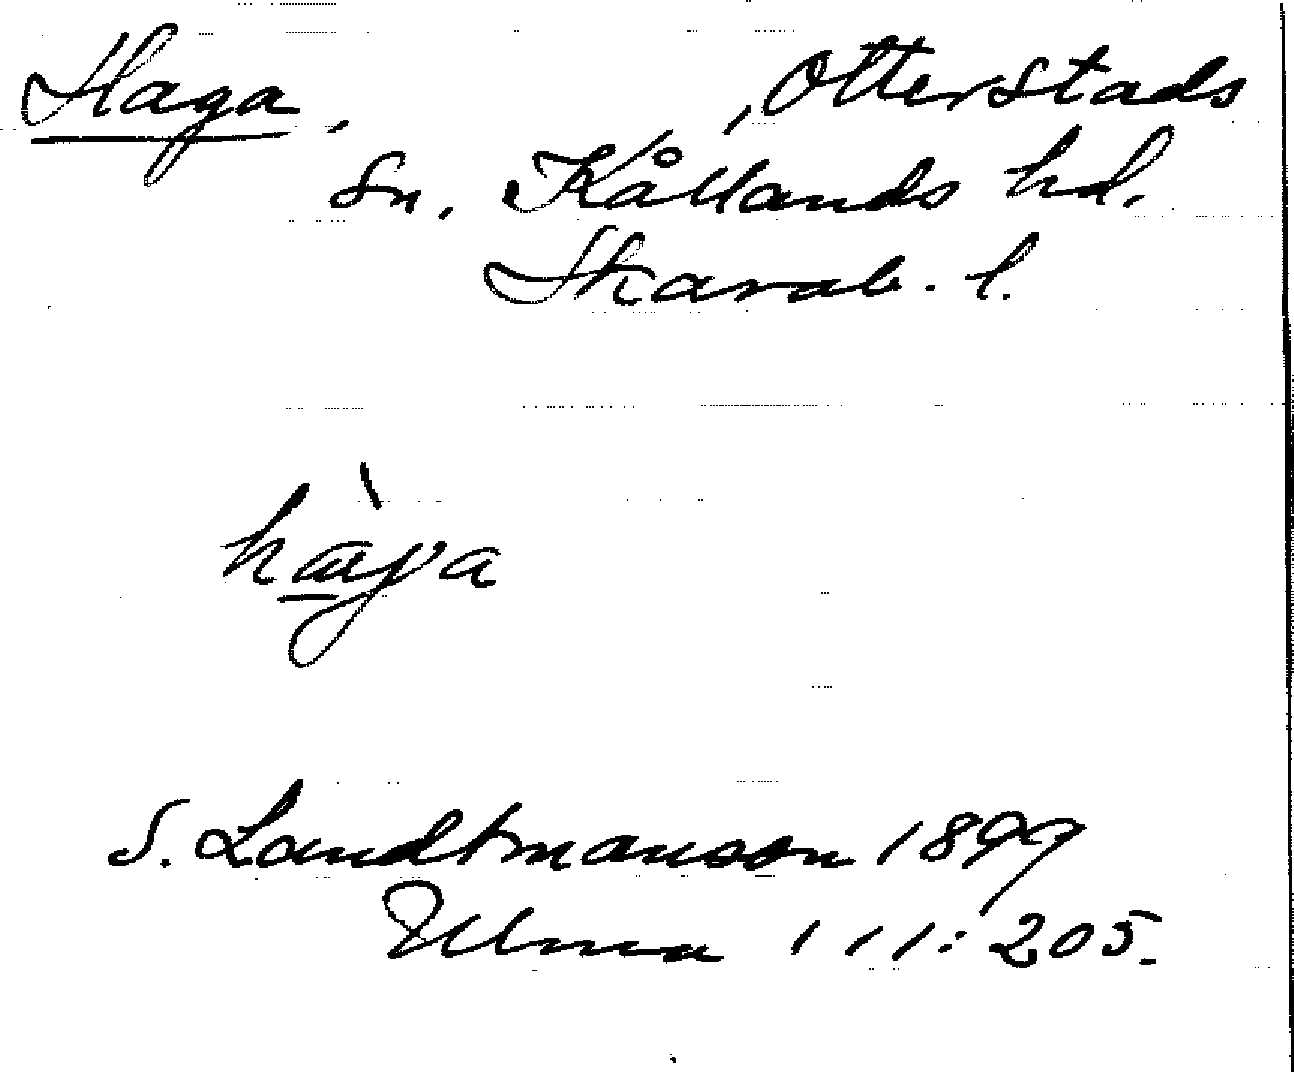 Haga, , Otterstads
sn. Kållands hd.
Skarab. l.
hàga
S. Landtmanson 1899
Ulma 111:205.